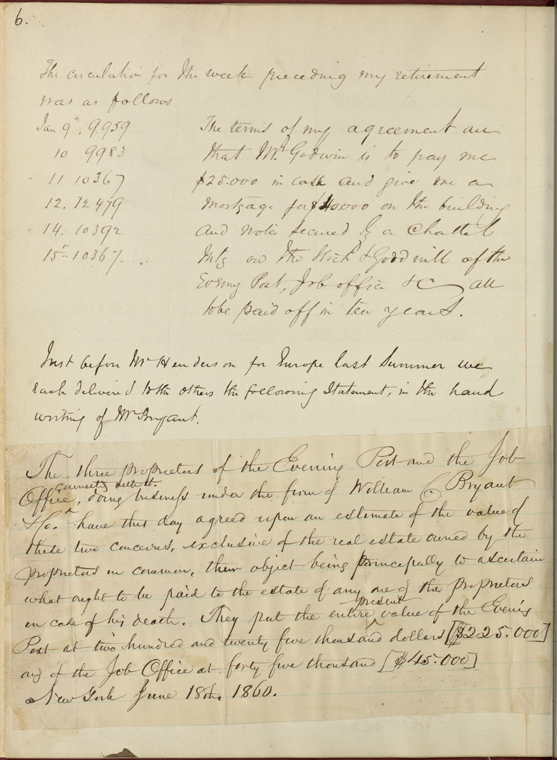 6.
The circulation for the week preceding my retirement
was as follows
Jan 9th. 9959
10 9983
11 10367
12. 12479
14. 10392
15- 10367.
The terms of my agreement are
that Mr Godwin is to pay me
$25.000 in cash and give me a
mortgage for $40000 on the building
and note secured by a Chattel
Mtg on the Stock & Goodwill of the
Evening Post, Job office &c all
to be paid off in ten years.
Just before Mr Henderson for Europe last Summer we
each delivered to the others the following Statement, in the hand
writing of Mr Bryant.
The three proprietors of the Evening Post and the Job
Office, connected with it. doing business under the firm of William C Bryant
& Co. have this day agreed upon an estimate of the value of
these two concerns, exclusive of the real estate owned by the
proprietors in common, their object being principally to ascertain
what ought to be paid to the estate of any one of the proprietors
in case of his death. They put the entire present value of the Evening
Post at two hundred and twenty five thousand dollars [$225.000]
and of the Job Office at forty five thousand [$45.000]
New York June 18th 1860.